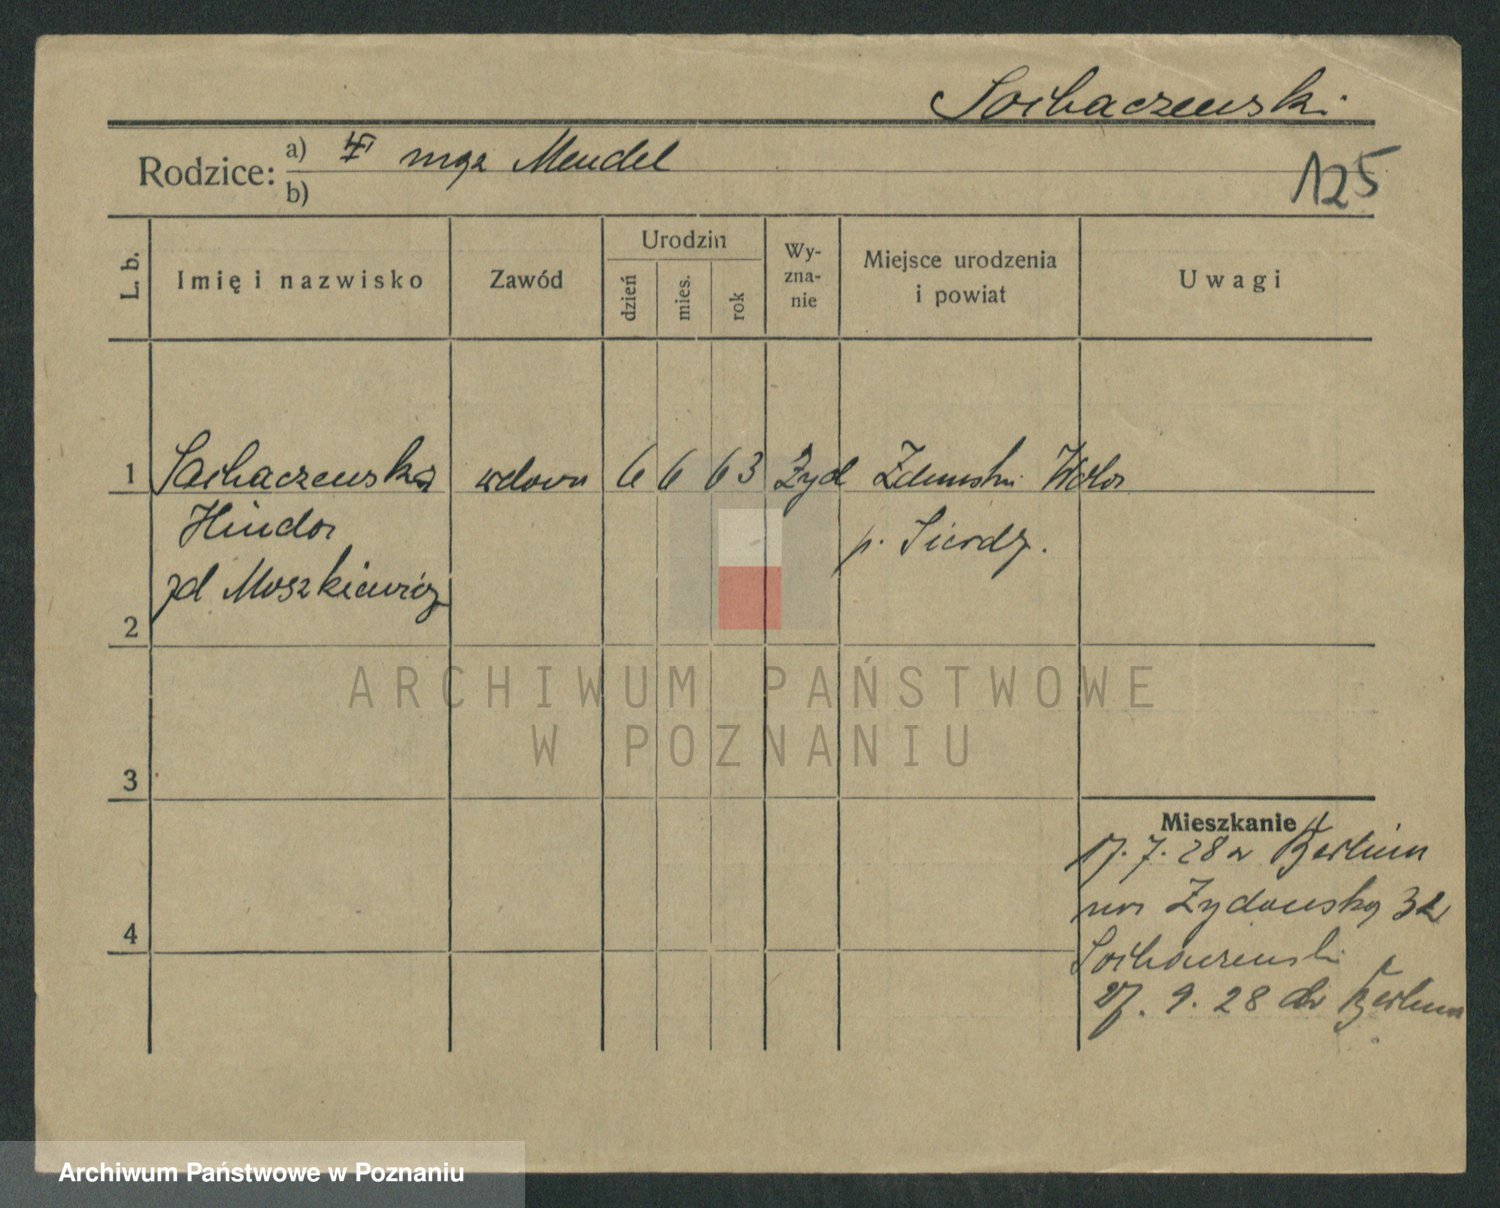 Sochaczewski
Rodzice: a) mąż Mendel
b)
125
L. b.
Imię i nazwisko
Zawód
Urodzin
dzień
mies.
rok
Wy-
zna-
nie
Miejsce urodzenia
i powiat
Uwagi
1 Sochaczewska wdowa 6 6 63 Żyd Zdunska Wola
Hinda p. Sieradz.
zd Moszkiewicz
2
ARCHIWUM PAŃSTWOWE
W POZNANIU
3
Mieszkanie
17. 7. 28 z Berlina
na Żydowską 32
4
Sochaczewski
27. 9. 28 do Berlina
Archiwum Państwowe w Poznaniu